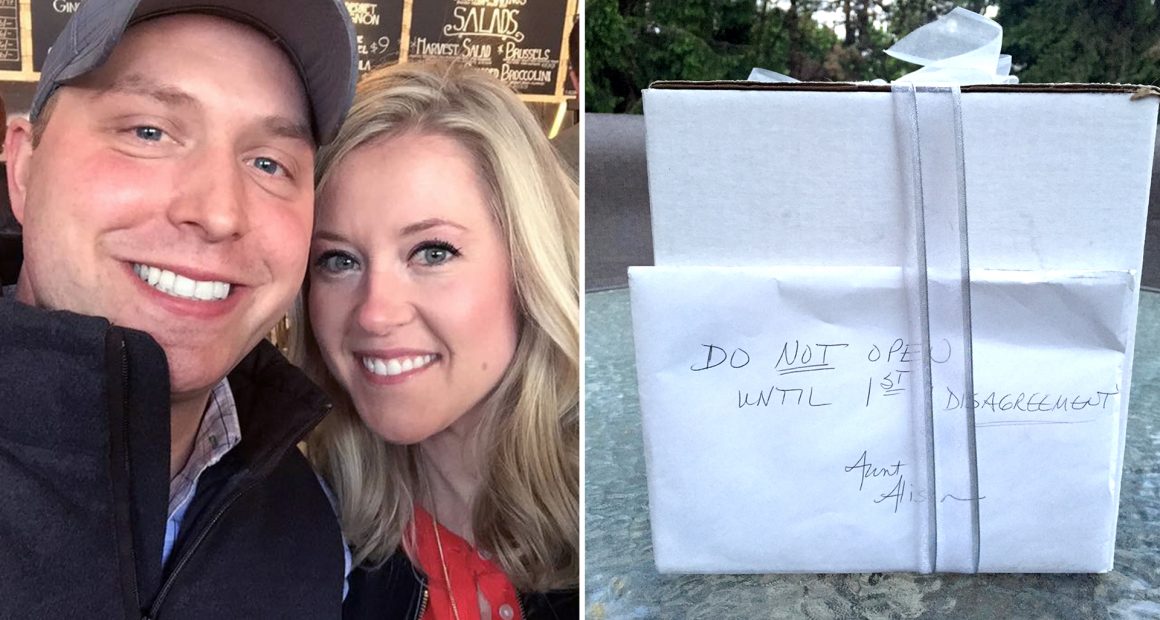 SALADS
HARVEST SALAD
BRUSSELS
BROCCOLINI
$9
DO NOT OPEN
UNTIL 1ST DISAGREEMENT
Aunt
Alison